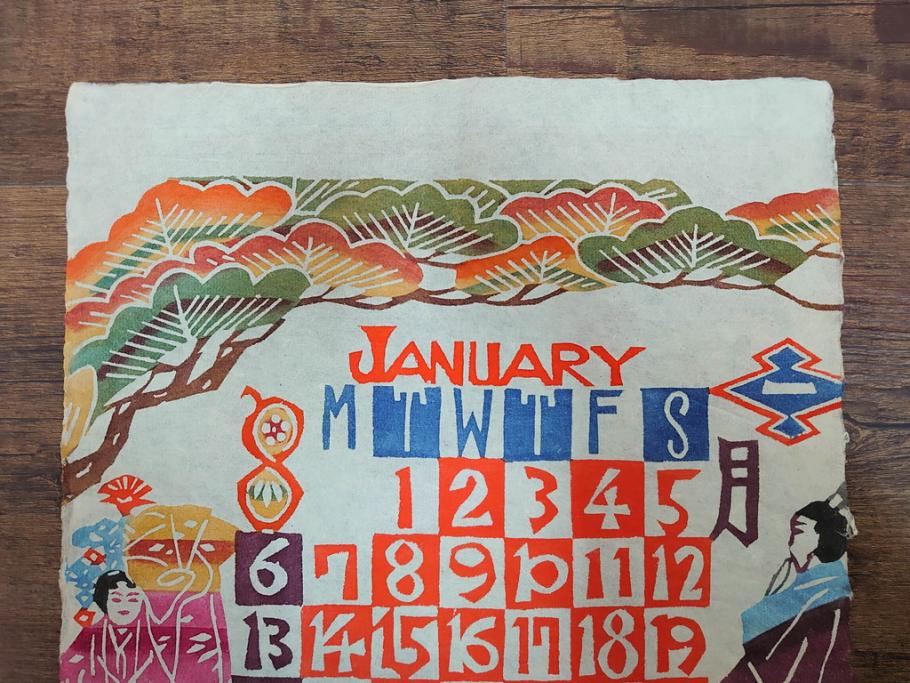 JANUARY
M T W T F S
一
月
1 2 3 4 5
6 7 8 9 10 11 12
13 14 15 16 17 18 19